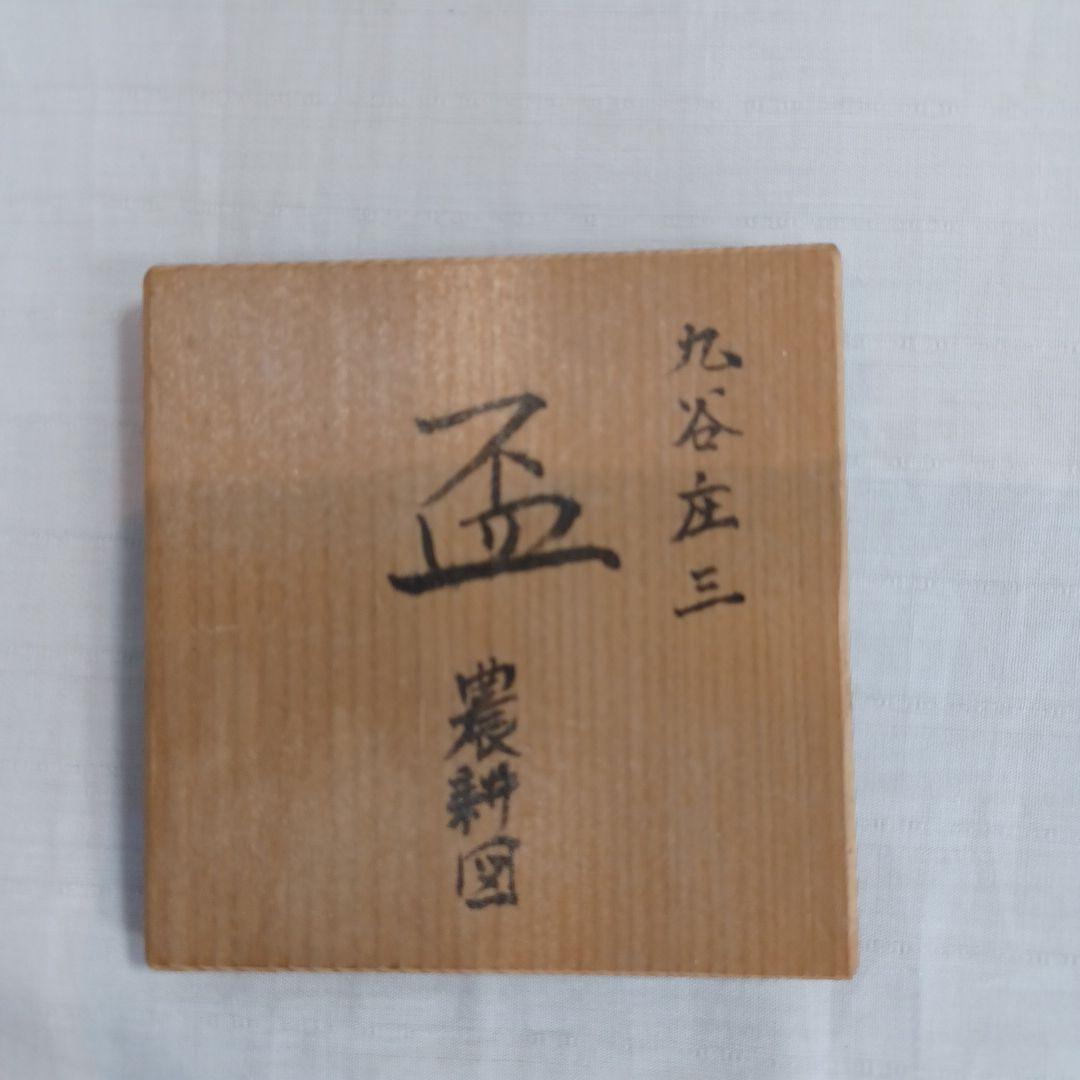 九谷庄三
盃
農耕図